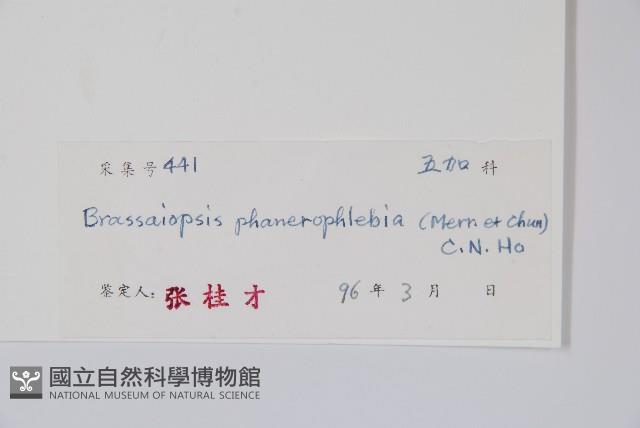 采集号 441 五加 科
Brassaiopsis phanerophlebia (Merr. et Chun)
C. N. Ho
鉴定人: 张桂才 96 年 3 月 日
國立自然科學博物館
NATIONAL MUSEUM OF NATURAL SCIENCE